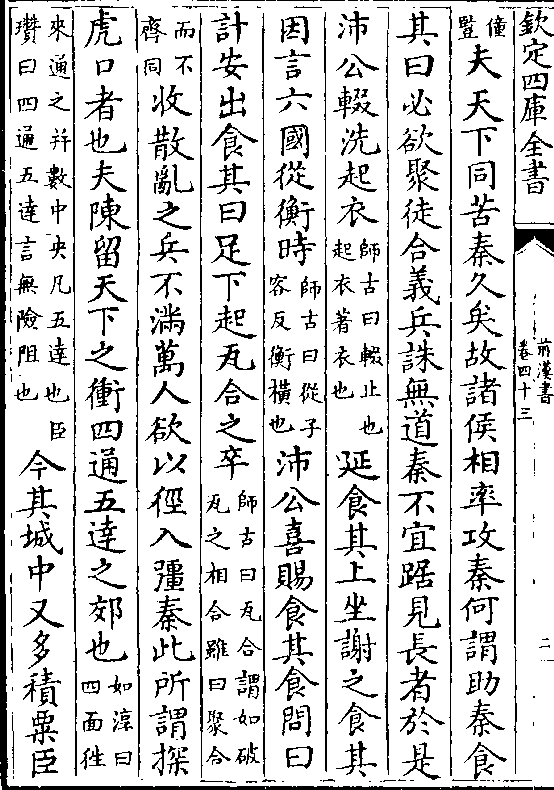 欽定四庫全書
前漢書
卷四十三
二
僮
豎夫天下同苦秦久矣故諸侯相率攻秦何謂助秦食
其曰必欲聚徒合義兵誅無道秦不宜踞見長者於是
沛公輟洗起衣師古曰輟止也起衣著衣也延食其上坐謝之食其
因言六國從衡時師古曰從子容反衡橫也沛公喜賜食其食問曰
計安出食其曰足下起瓦合之卒師古曰瓦合謂如破瓦之相合雖曰聚合
而不齊同收散亂之兵不滿萬人欲以徑入彊秦此所謂探
虎口者也夫陳留天下之衝四通五達之郊也如淳曰四面徃
來通之并數中央凡五達也臣瓚曰四通五達言無險阻也今其城中又多積粟臣